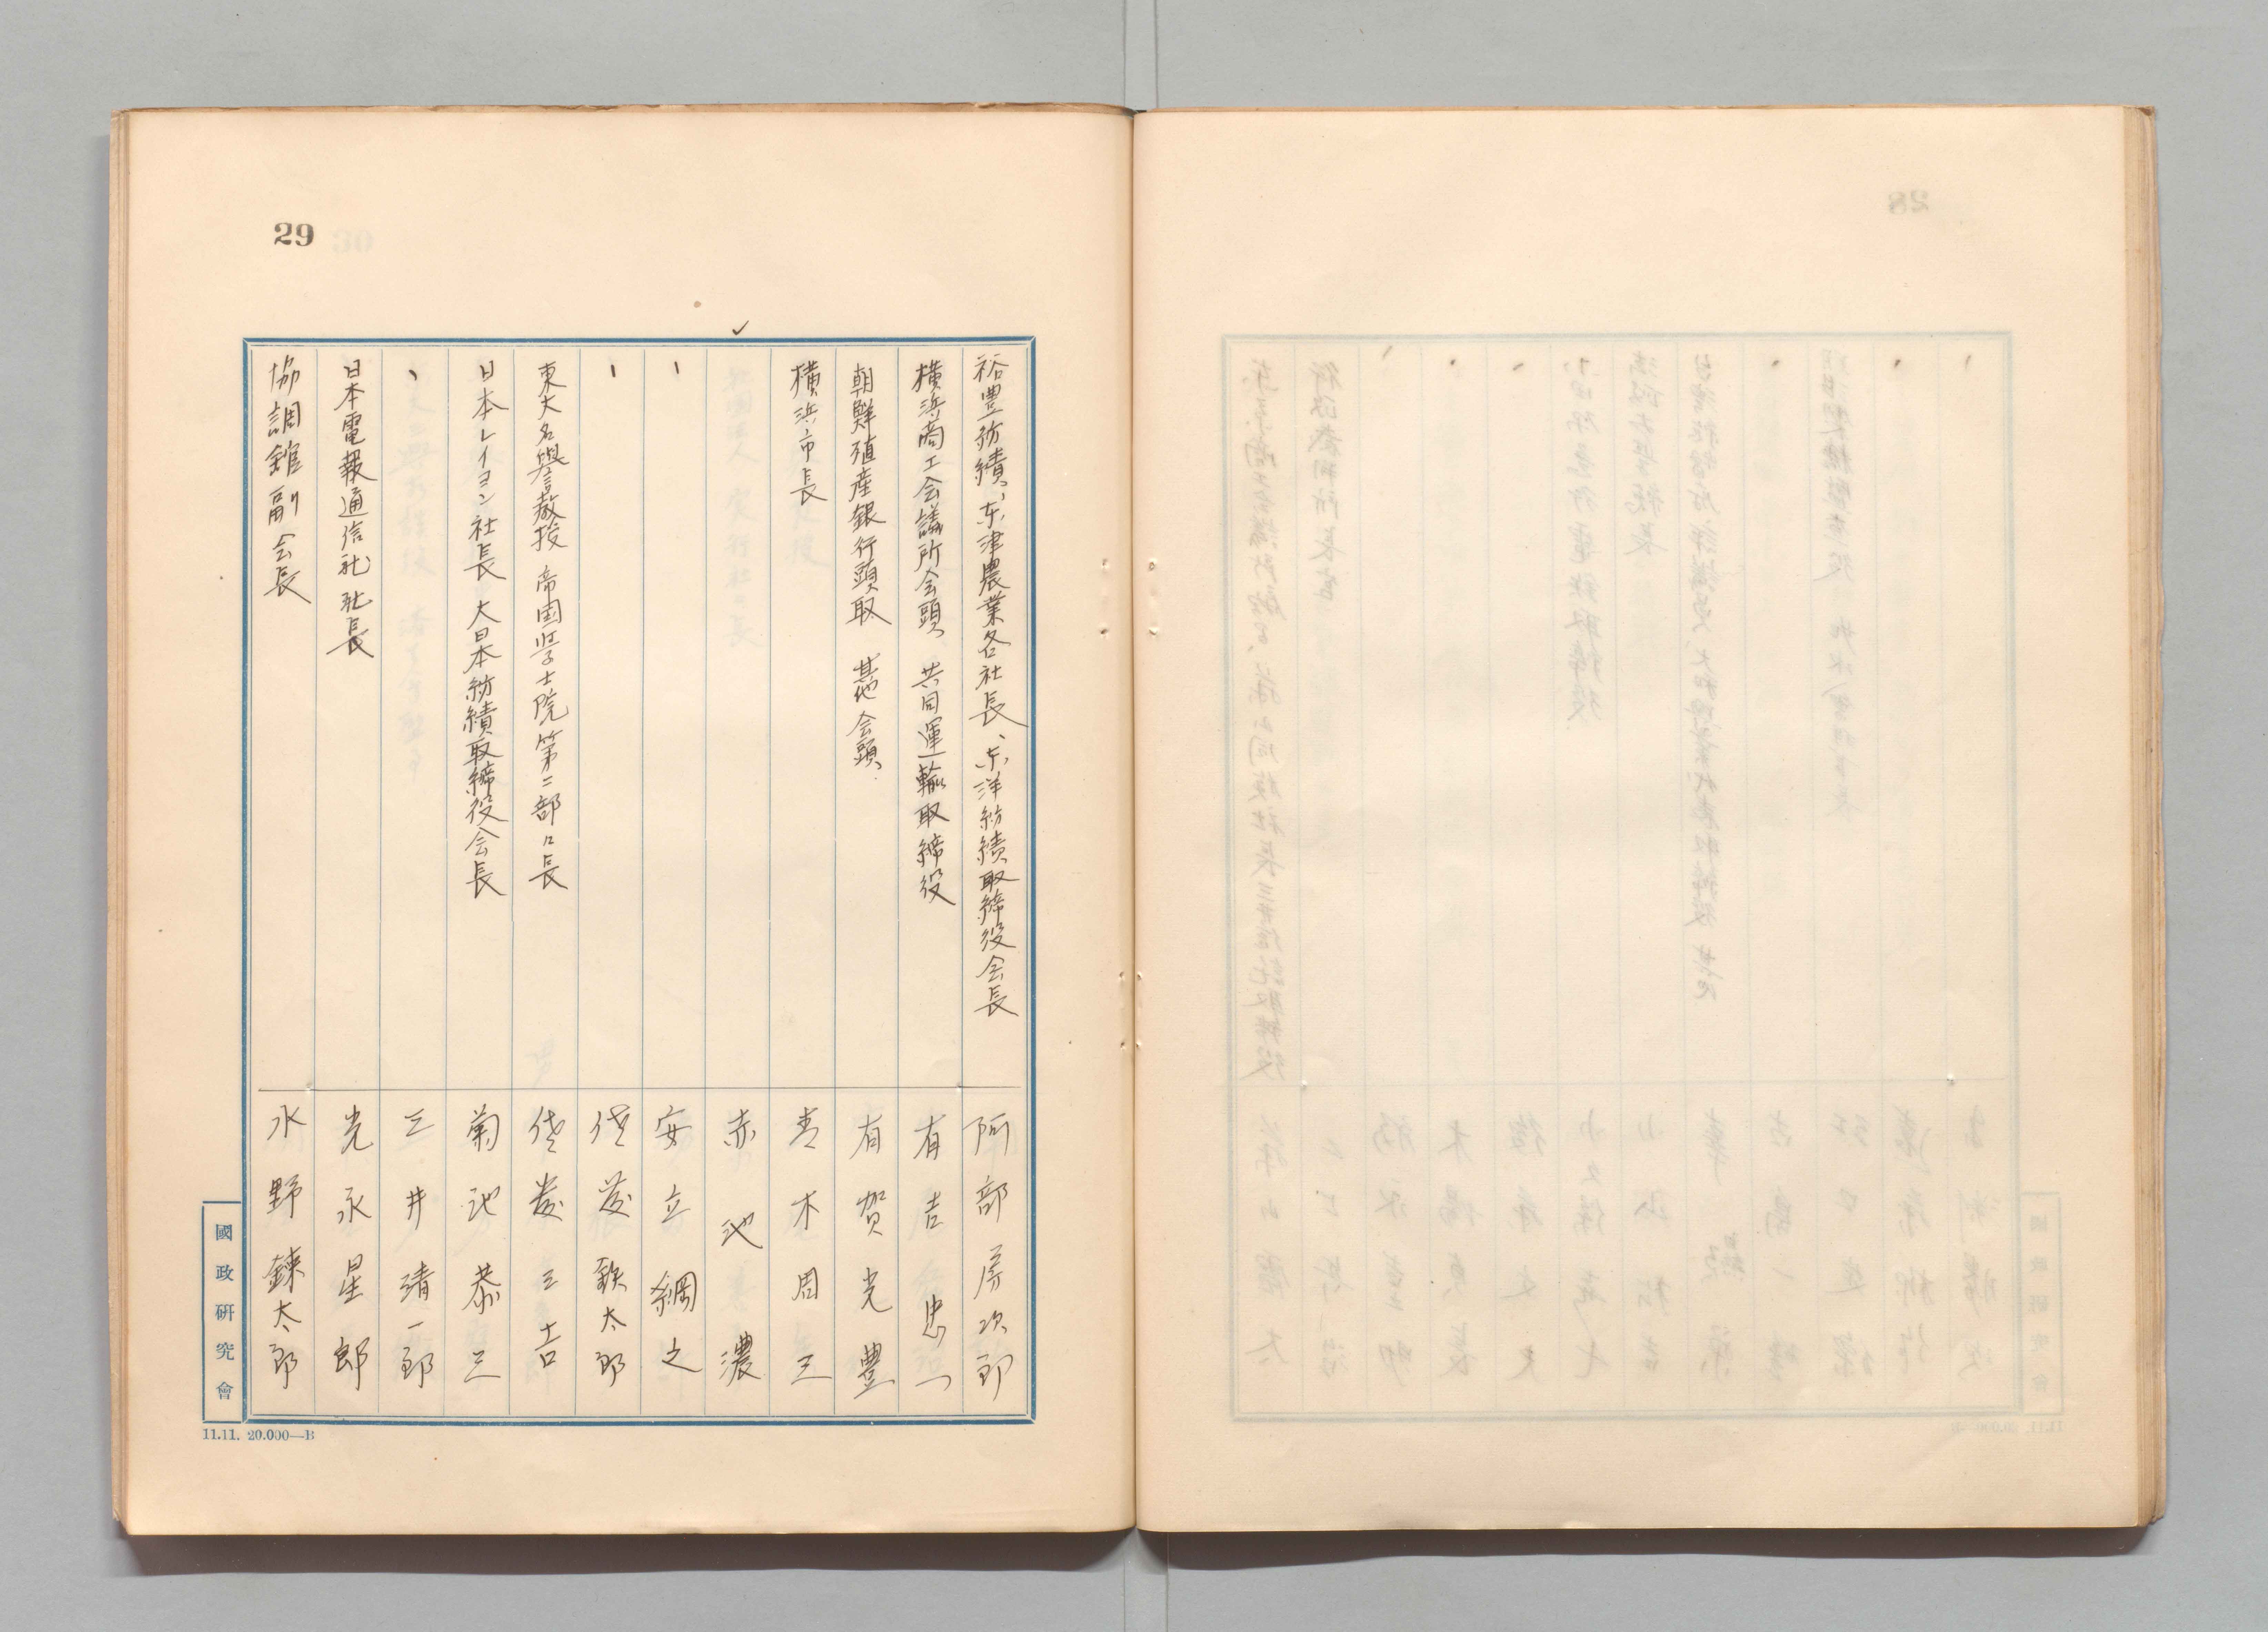 29
裕豊紡績、东津農業各社長、东洋紡績取締役会長 阿部房次郎
横浜商工会議所会頭、共同運輸取締役 有吉忠一
朝鮮殖産銀行頭取 其他会頭、 有賀光豊
横浜市長 青木周三
赤池濃
安立綱之
佐藤鉄太郎
東大名譽教授 帝国学士院第二部々長 佐藤三吉
日本レイヨン社長 大日本紡績取締役会長 菊池恭三
三井清一郎
日本電報通信社社長 光永星郎
協調館副会長 水野錬太郎
國政研究會
11.11. 20.000—B